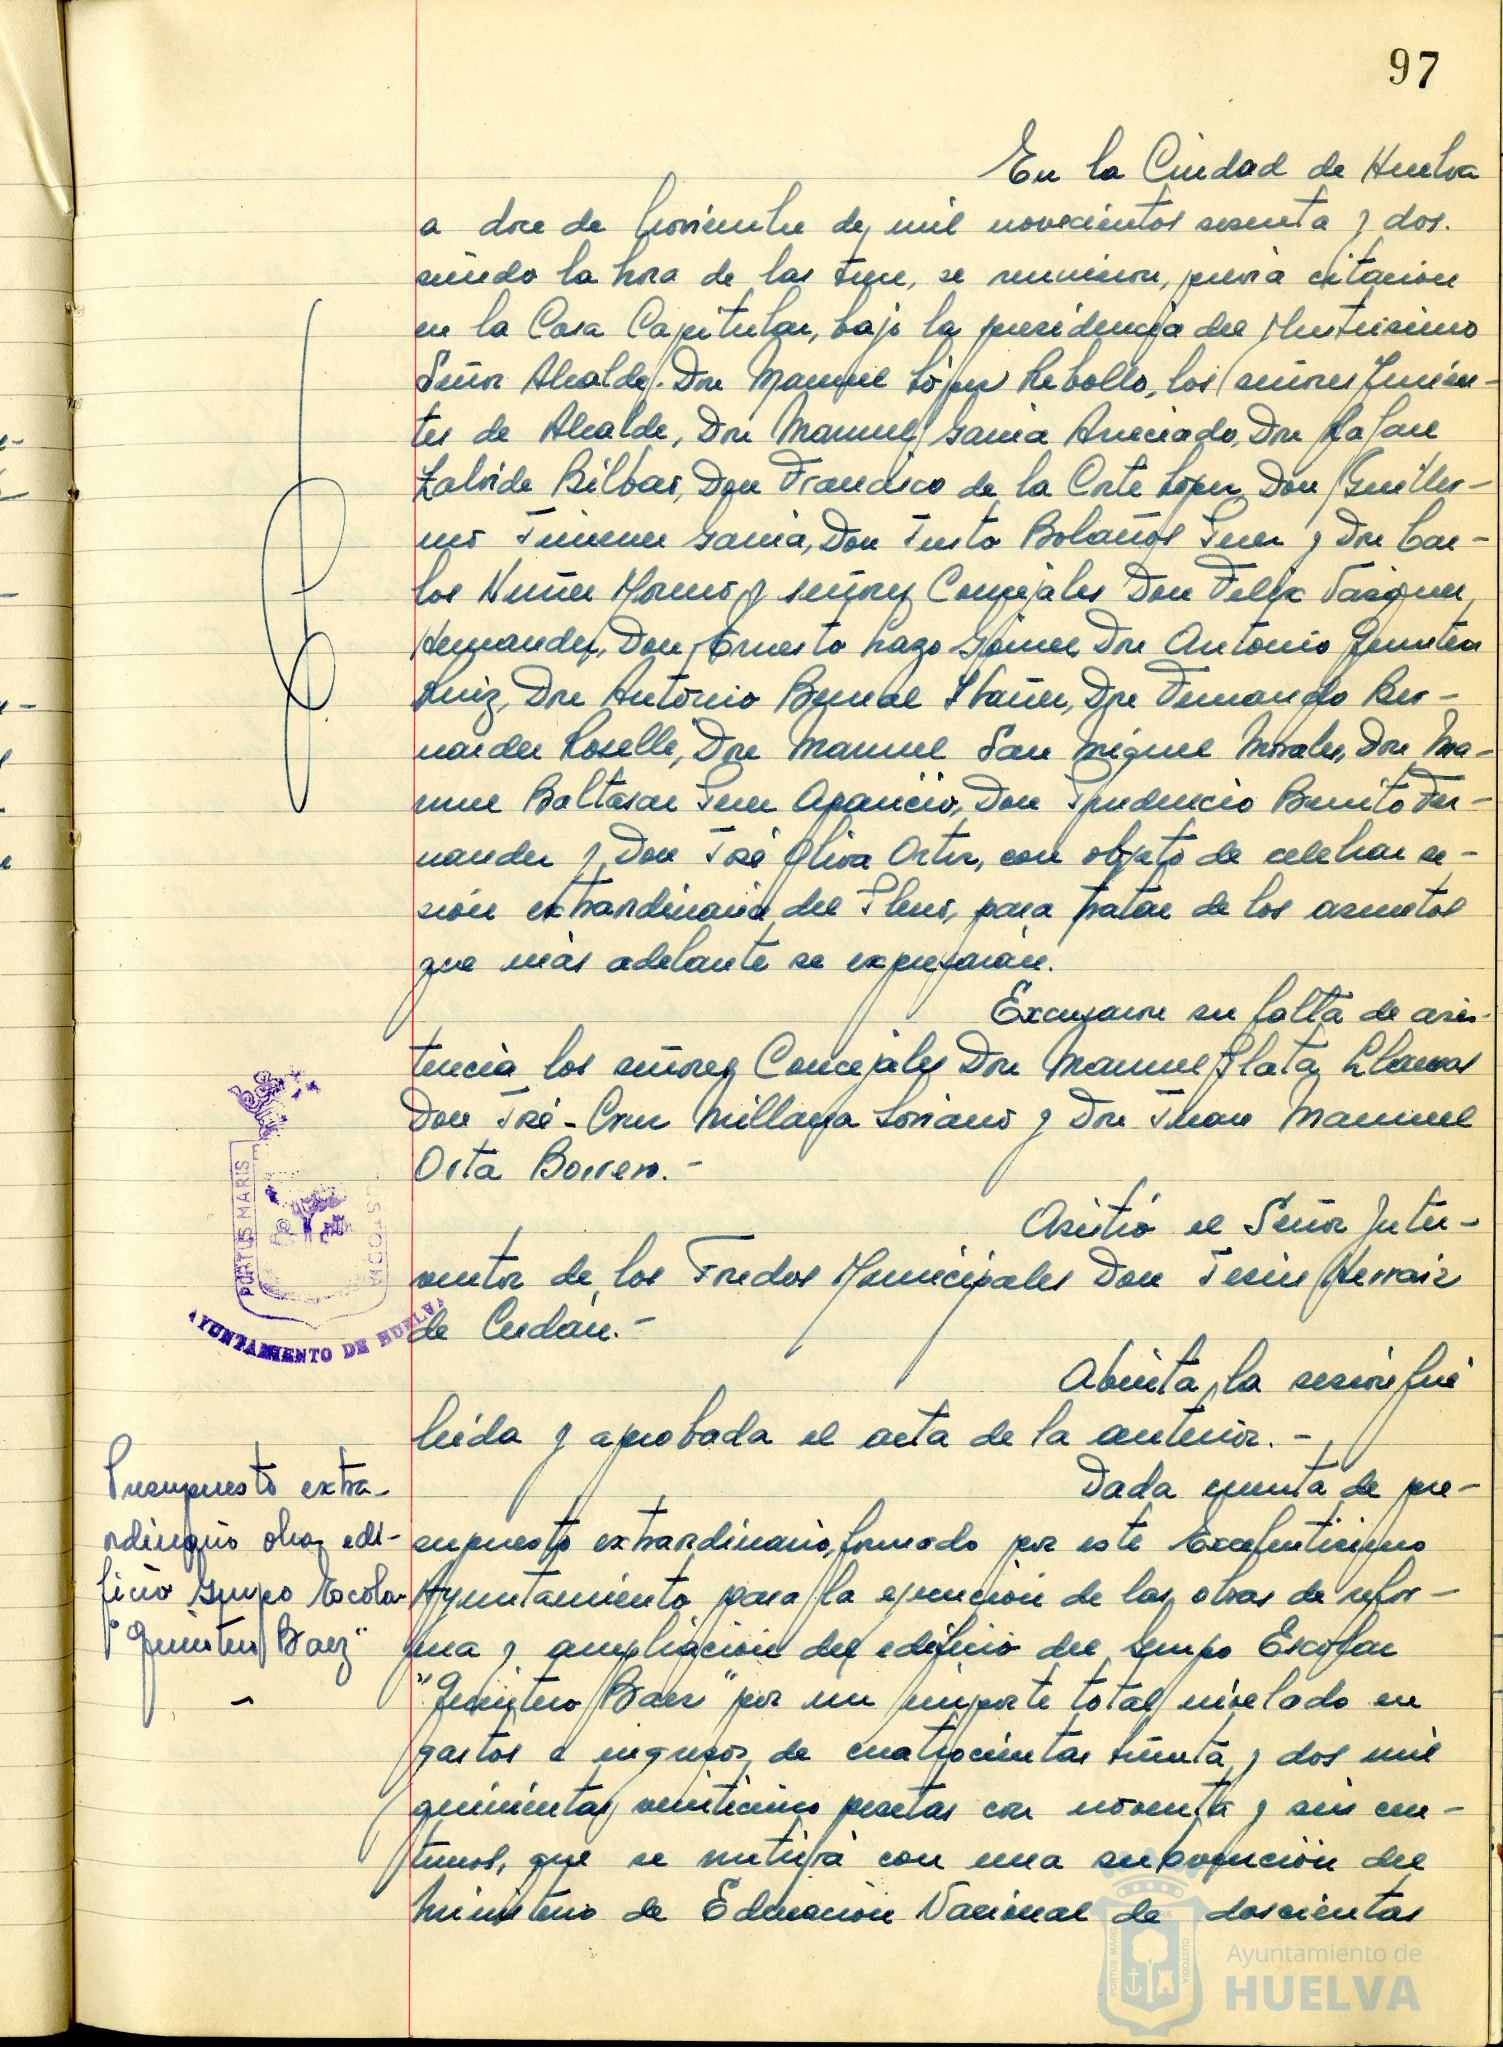 97
En la Ciudad de Huelva
a doce de Noviembre de mil novecientos sesenta y dos.
siendo la hora de las trece, se reunieron, previa citacion
en la Casa Capitular, bajo la presidencia del Ilustrisimo
Señor Alcalde. Don Manuel López Rebollo, los señores Tenien-
tes de Alcalde, Don Manuel Garcia Aneciado, Don Rafael
Zalvide Bilbao, Don Francisco de la Corte López, Don Guiller-
mo Jimenez Garcia, Don Justo Bolaños Perez y Don Car-
los Nuñez Moreno y señores Concejales Don Felix Vázquez
Hernandez, Don Ernesto Lazo Gómez, Don Antonio Quintero
Ruiz, Don Antonio Bernal Ibañez, Don Fernando Ber-
nardez Roselló, Don Manuel San Miguel Morales, Don Ma-
nuel Baltasar Perez Aparicio, Don Prudencio Benito Fer-
nandez y Don José Oliva Ortiz, con objeto de celebrar se-
sión extraordinaria del Pleno, para tratar de los asuntos
que más adelante se expresarán.
Excusaron su falta de asis-
tencia los señores Concejales Don Manuel Plata Llamas
Don José-Cruz Millaya Soriano y Don Juan Manuel
Orta Borrero.-
Asistió el Señor Inter-
ventor de los Fondos Municipales Don Jesus Herraiz
de Cerdán.-
Abierta la sesión fué
leida y aprobada el acta de la anterior.-
Presupuesto extra-
ordinario obra edi-
ficio Grupo Escolar
"Quintero Baez"
-
Dada cuenta de pre-
supuesto extraordinario, formado por este Excelentisimo
Ayuntamiento para la ejecución de las obras de refor-
ma y ampliación del edificio del Grupo Escolar
"Quintero Baez" por un importe total nivelado en
gastos e ingresos, de cuatrocientas treinta y dos mil
quinientas veinticinco pesetas con noventa y seis cen-
timos, que se nutirá con una subvención del
Ministerio de Educación Nacional de doscientas
PORTUS MARIS
CUSTODIA
AYUNTAMIENTO DE HUELVA
Ayuntamiento de
HUELVA